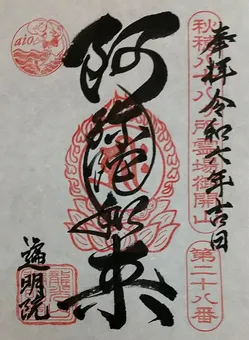 奉拝 令和六年吉日
秩父十三仏霊場御開山
第二十八番
阿弥陀如来
遍明院
aio